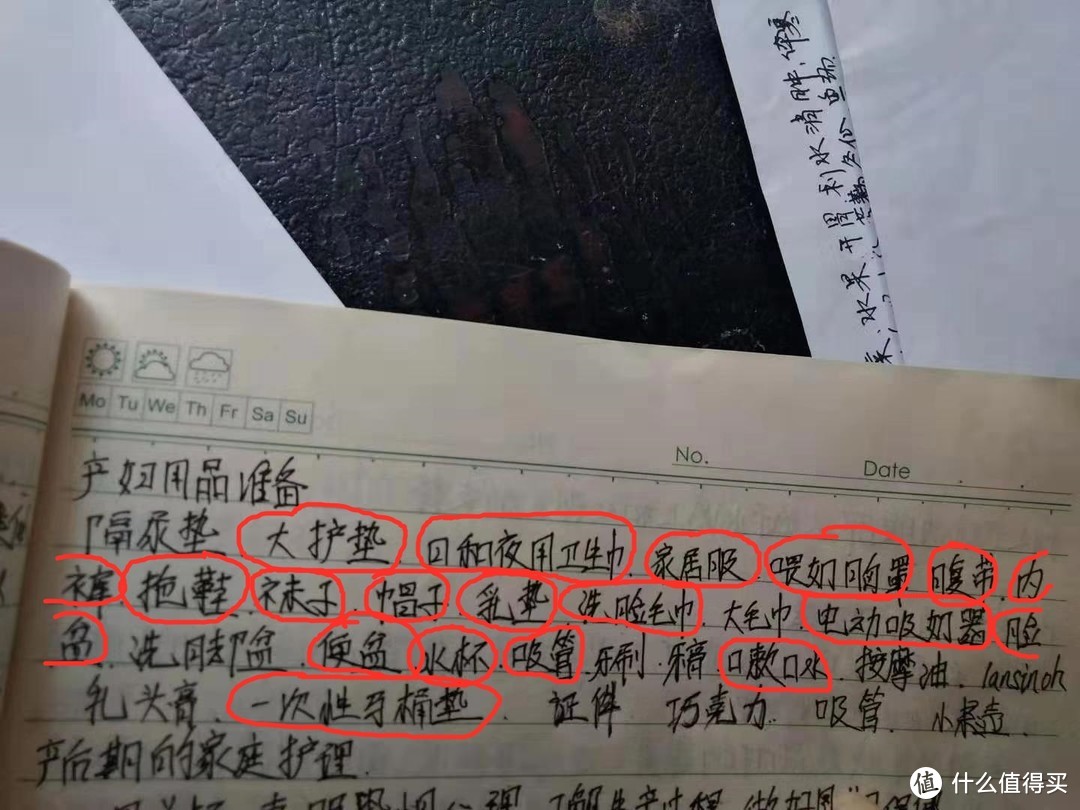 体寒
水果、开胃利水消肿、
Mo Tu We Th Fr Sa Su
No.
Date
产妇用品准备
隔尿垫 大护垫 日和夜用卫生巾、家居服、喂奶胸罩 腹带、内
裤、拖鞋、袜子、帽子、乳垫、洗脸毛巾、大毛巾、电动吸奶器、脸
盆、洗脚盆、便盆、水杯、吸管、牙刷、牙膏、口漱口水、按摩油、lansinoh
乳头膏、一次性马桶垫、证件 巧克力、吸管、小
产后期的家庭护理
值 什么值得买